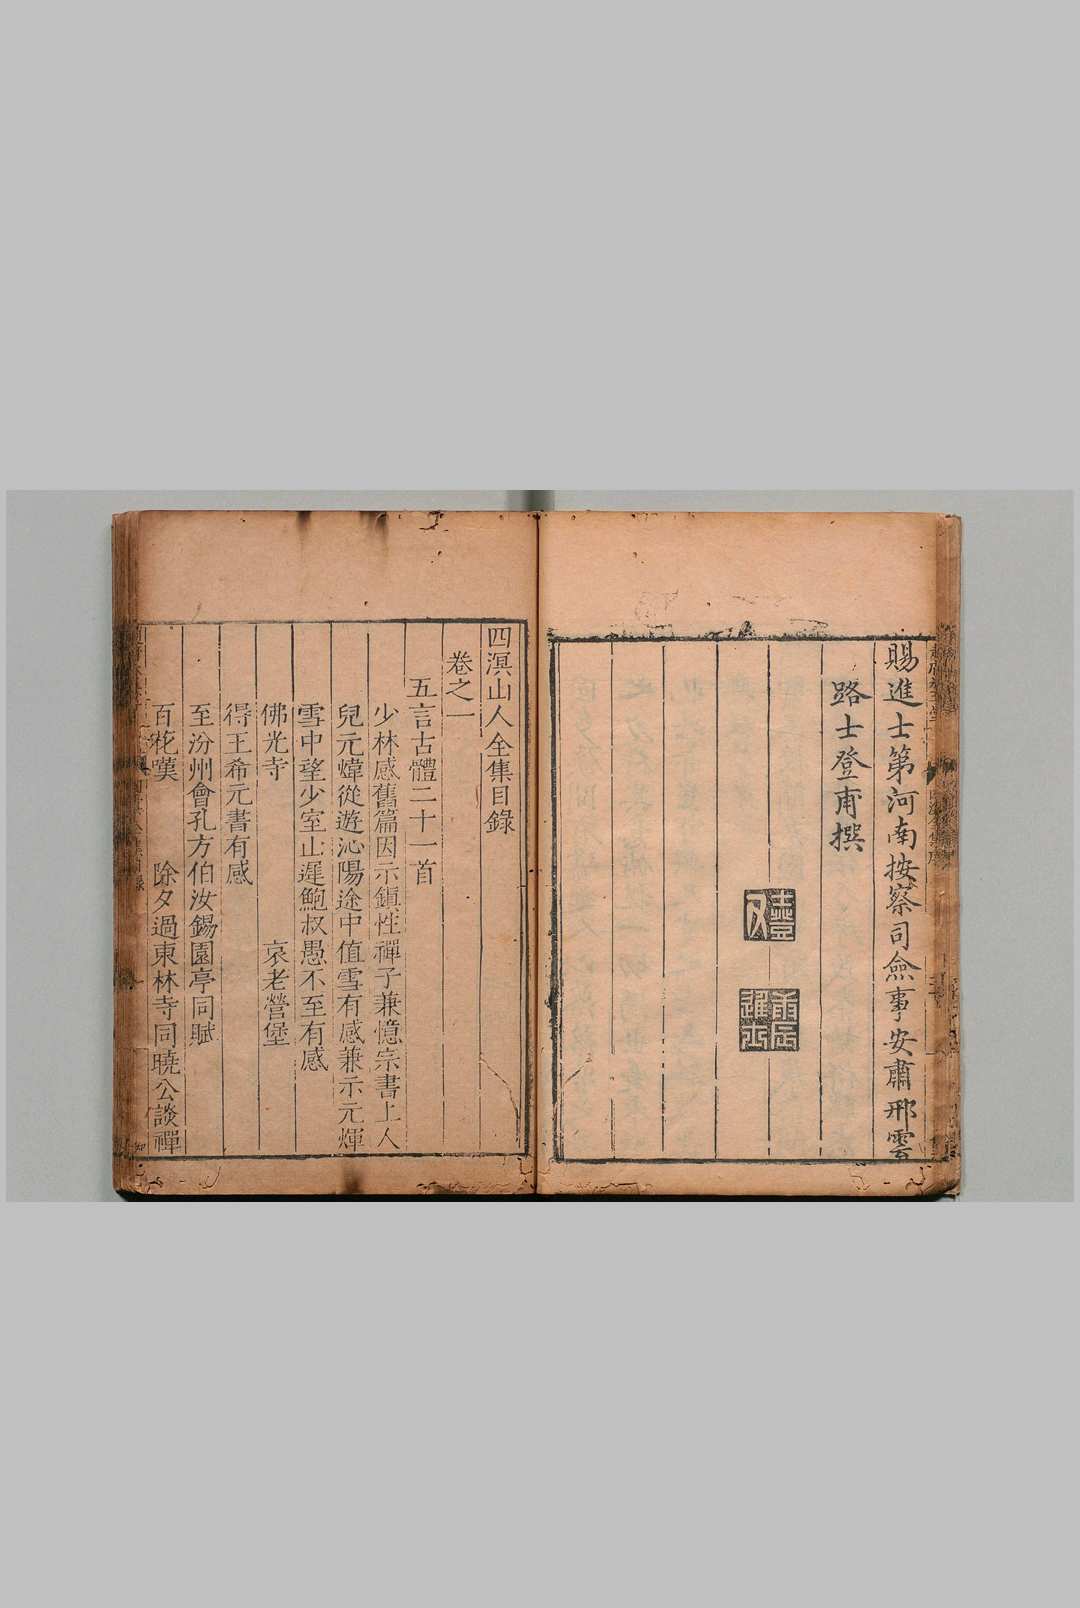 賜進士第河南按察司僉事安肅邢雲
路士登甫撰
四溟山人全集目錄
卷之一
五言古體二十一首
少林感舊篇因示鎮性禪子兼憶宗書上人
兒元煒從遊沁陽途中值雪有感兼示元煇
雪中望少室山遲鮑叔愚不至有感
佛光寺 哀老營堡
得王希元書有感
至汾州會孔方伯汝錫園亭同賦
百花嘆 除夕過東林寺同曉公談禪